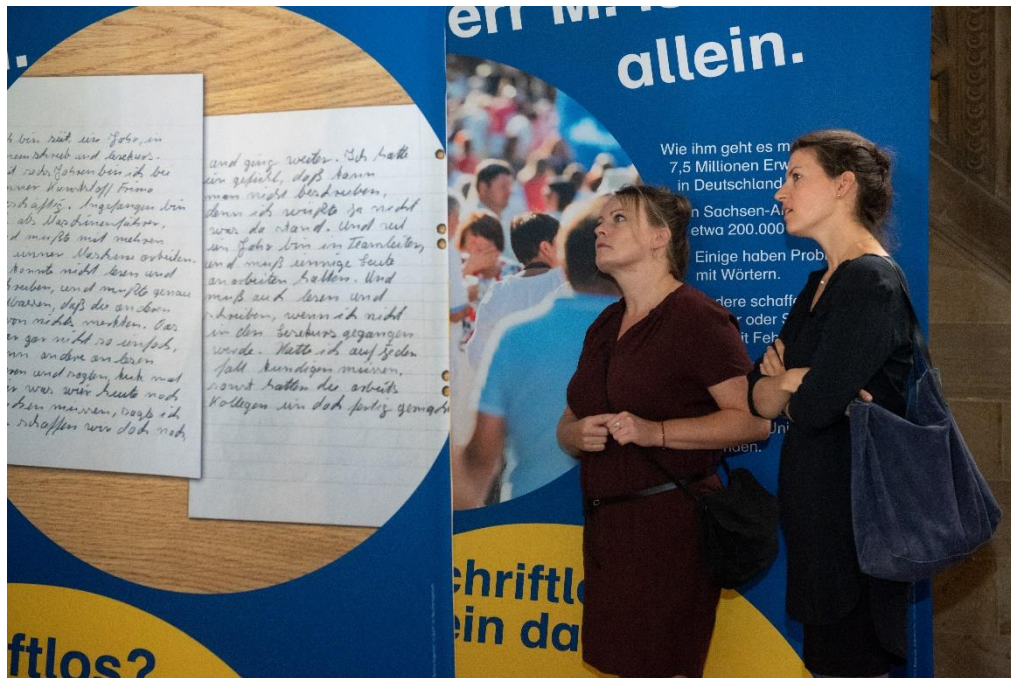 n.
bin seit ein Jahr, in
schreib und lesekurs.
sechs Jahren bin ich bei
Kunststoff Firma
Angefangen bin
als Maschinenführer,
mußte mit mehren
Maschiene arbeiten.
konnte nicht lesen und
und mußte genau
daß die anderen
von nichts merkten. Das
gar nicht so einfach,
andere an lesen
und sagten, kuck mal
wir heute noch
müssen, sagte ich
schaffen wir doch noch,
und ging weiter. Ich hatte
ein gefühl, daß kann
man nicht beschreiben,
denn ich wußte ja nicht
was da stand. Und seit
ein Jahr bin in Teamleiter,
und muß einnige Leute
an arbeiten halten. Und
muß auch lesen und
schreiben, wenn ich nicht
in den Lesekurs gegangen
werde. Hätte ich auf jeden
fall kündigen müssen,
sonst hätten die arbeits
Kollegen ein doch fertig gemacht
ftlos?
err M. is
allein.
Wie ihm geht es m
7,5 Millionen Erw
in Deutschland
n Sachsen-A
etwa 200.000
Einige haben Prob
mit Wörtern.
dere schaffe
r oder S
it Feh
Uni
nden.
chriftl
ein da